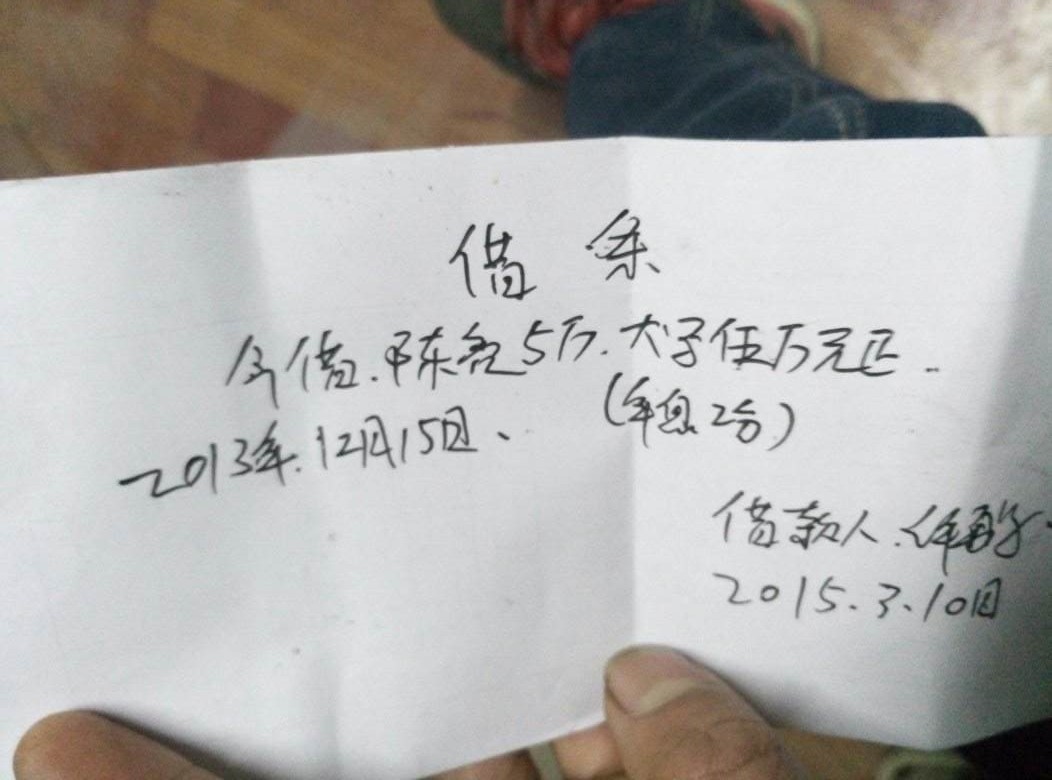 借 条
今借.陈亮5万.大字伍万元正..
(年息2分)
2013年.12月15日、
借款人.
2015.3.10日